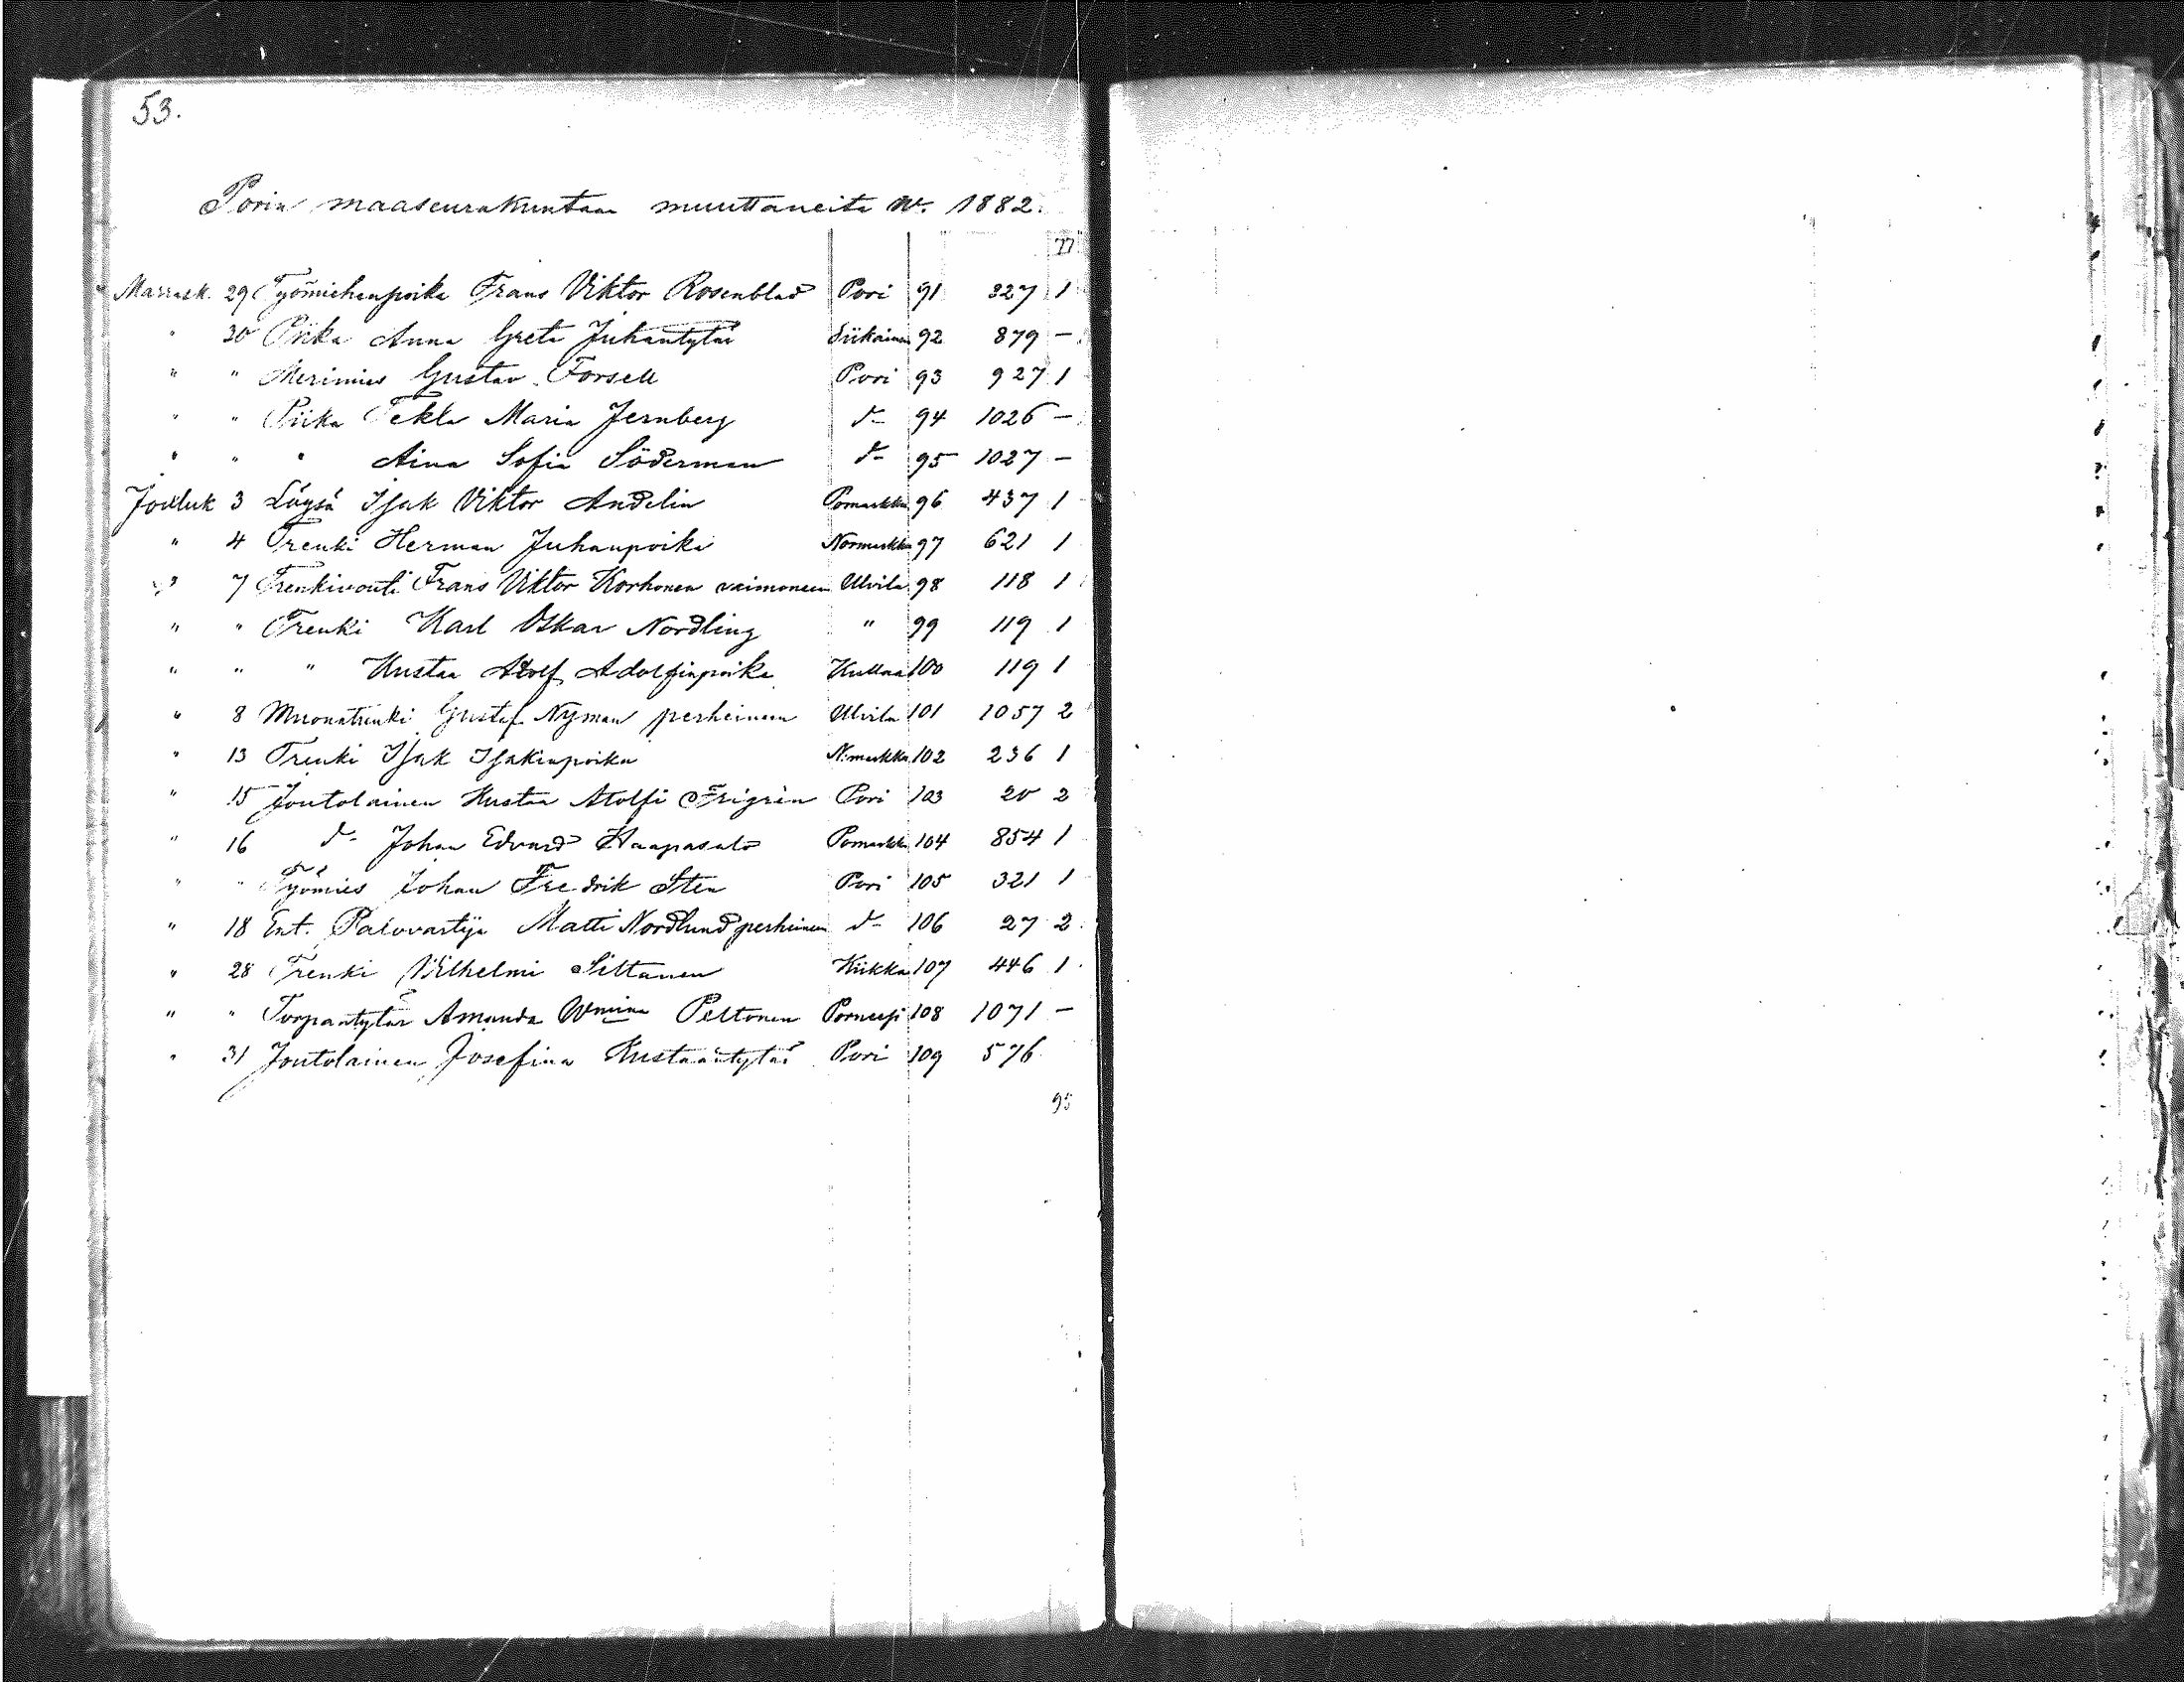 53.
Porin maaseurakuntaan muuttaneita w. 1882.
77
Marrask. 29 Työmiehenpoika Frans Viktor Rosenblad Pori 91 327 1
" 30 Piika Anna Greta Juhantytär Siikainen 92 879 -
" " Merimies Gustav Forsell Pori 93 927 1
" " Piika Tekla Maria Jernberg d- 94 1026 -
" " " Aina Sofia Söderman d- 95 1027 -
Jouluk 3 Löysä Isak Viktor Andelin Pomarkku 96 437 1
" 4 Trenki Herman Juhanpoika Normarkku 97 621 1
" 7 Trenkivouti Frans Viktor Korhonen vaimoneen Ulvila 98 118 1
" " Trenki Karl Oskar Nordling " 99 119 1
" " " Kustaa Adolf Adolfinpoika Kullaa 100 119 1
" 8 Muonatrenki Gustaf Nyman perheineen Ulvila 101 1057 2
" 13 Trenki Isak Isakinpoika N:markku 102 236 1
" 15 Joutolainen Kustaa Atolfi Frigrèn Pori 103 20 2
" 16 d- Johan Edvard Haapasalo Pomarkku 104 854 1
" " Työmies Johan Fredrik Sten Pori 105 321 1
" 18 Ent. Palovartija Matti Nordlund perheineen d- 106 27 2
" 28 Trenki Vilhelmi Siltanen Kiikka 107 446 1
" " Torpantytär Amanda Peltonen 108 1071 -
" 31 Joutolainen Josefina Kustaantytär Pori 109 576
95